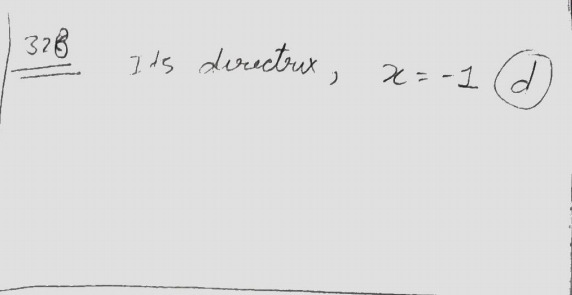 328
Its directrix, x = -1 (d)